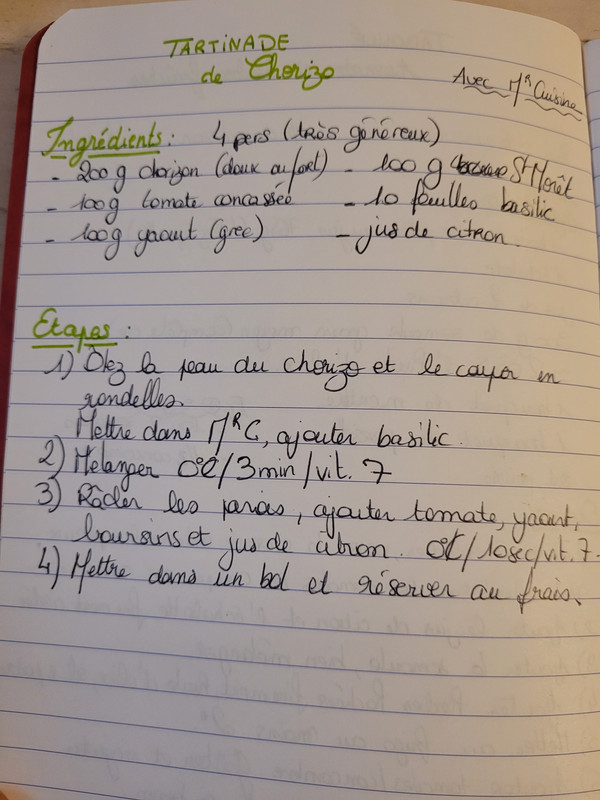 TARTINADE
de Chorizo
Avec MR Cuisine
Ingrédients : 4 pers (très généreux)
- 200g chorizon (doux ou fort) - 100 g St Morêt
- 100g tomate concassée - 10 feuilles basilic
- 100g yaourt (grec) - jus de citron.
Etapes :
1) Otez la peau du chorizo et le couper en
rondelles.
Mettre dans MR C, ajouter basilic.
2) Mélanger 0°C/3min/vit. 7
3) Râcler les parois, ajouter tomate, yaourt,
boursins et jus de citron. 0°C/10sec/vit. 7.
4) Mettre dans un bol et réserver au frais.